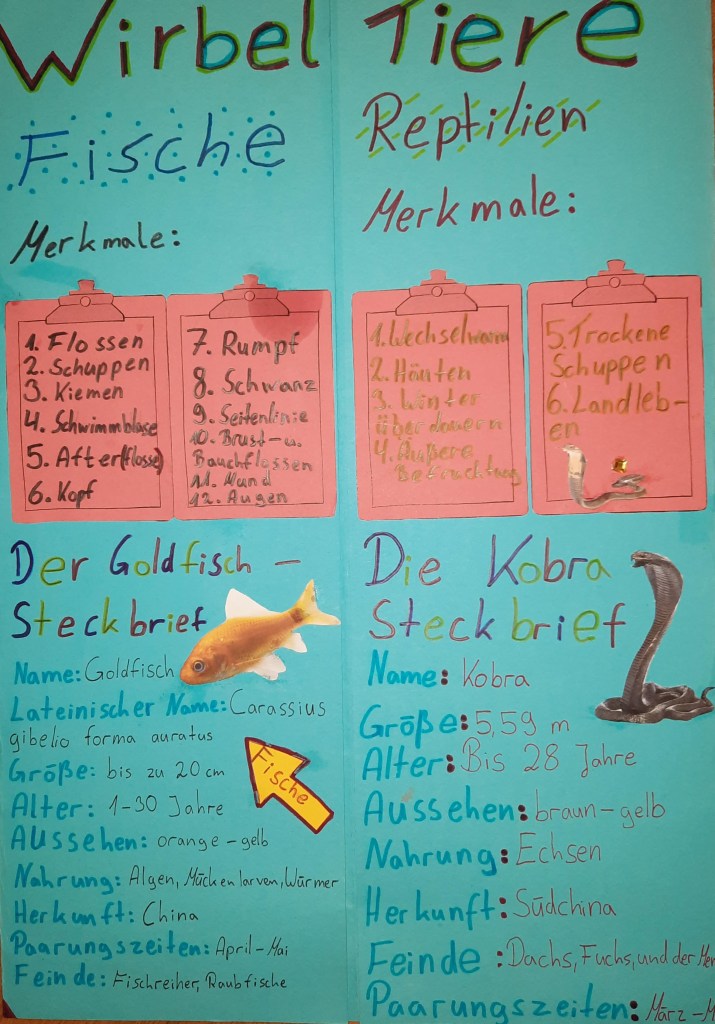 Wirbel Tiere
Fische
Merkmale:
1. Flossen
2. Schuppen
3. Kiemen
4. Schwimmblase
5. After(flosse)
6. Kopf
7. Rumpf
8. Schwanz
9. Seitenlinie
10. Brust-u.
Bauchflossen
11. Mund
12. Augen
Der Goldfisch -
Steckbrief
Name: Goldfisch
Lateinischer Name: Carassius
gibelio forma auratus
Größe: bis zu 20 cm
Alter: 1-30 Jahre
Aussehen: orange-gelb
Nahrung: Algen, Mückenlarven, Würmer
Herkunft: China
Paarungszeiten: April-Mai
Feinde: Fischreiher, Raubfische
Fische
Reptilien
Merkmale:
1. Wechselwarm
2. Häuten
3. Winter
überdauern
4. Äußere
Befruchtung
5. Trockene
Schuppen
6. Landleb-
en
Die Kobra
Steckbrief
Name: Kobra
Größe: 5,59 m
Alter: Bis 28 Jahre
Aussehen: braun-gelb
Nahrung: Echsen
Herkunft: Südchina
Feinde: Dachs, Fuchs, und der
Paarungszeiten: März-